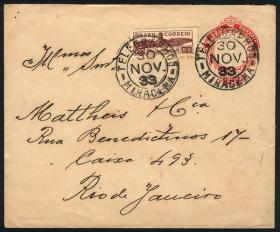 BRASIL CORREIO
RS
TELEGRAPHOS
30
NOV.
33
MIRACEMA
TELEGRAPHOS
30
NOV.
33
MIRACEMA
Illmos Snrs.
Mattheis & Cia
Rua Benedictinos 17-
Caixa 493.
Rio de Janeiro